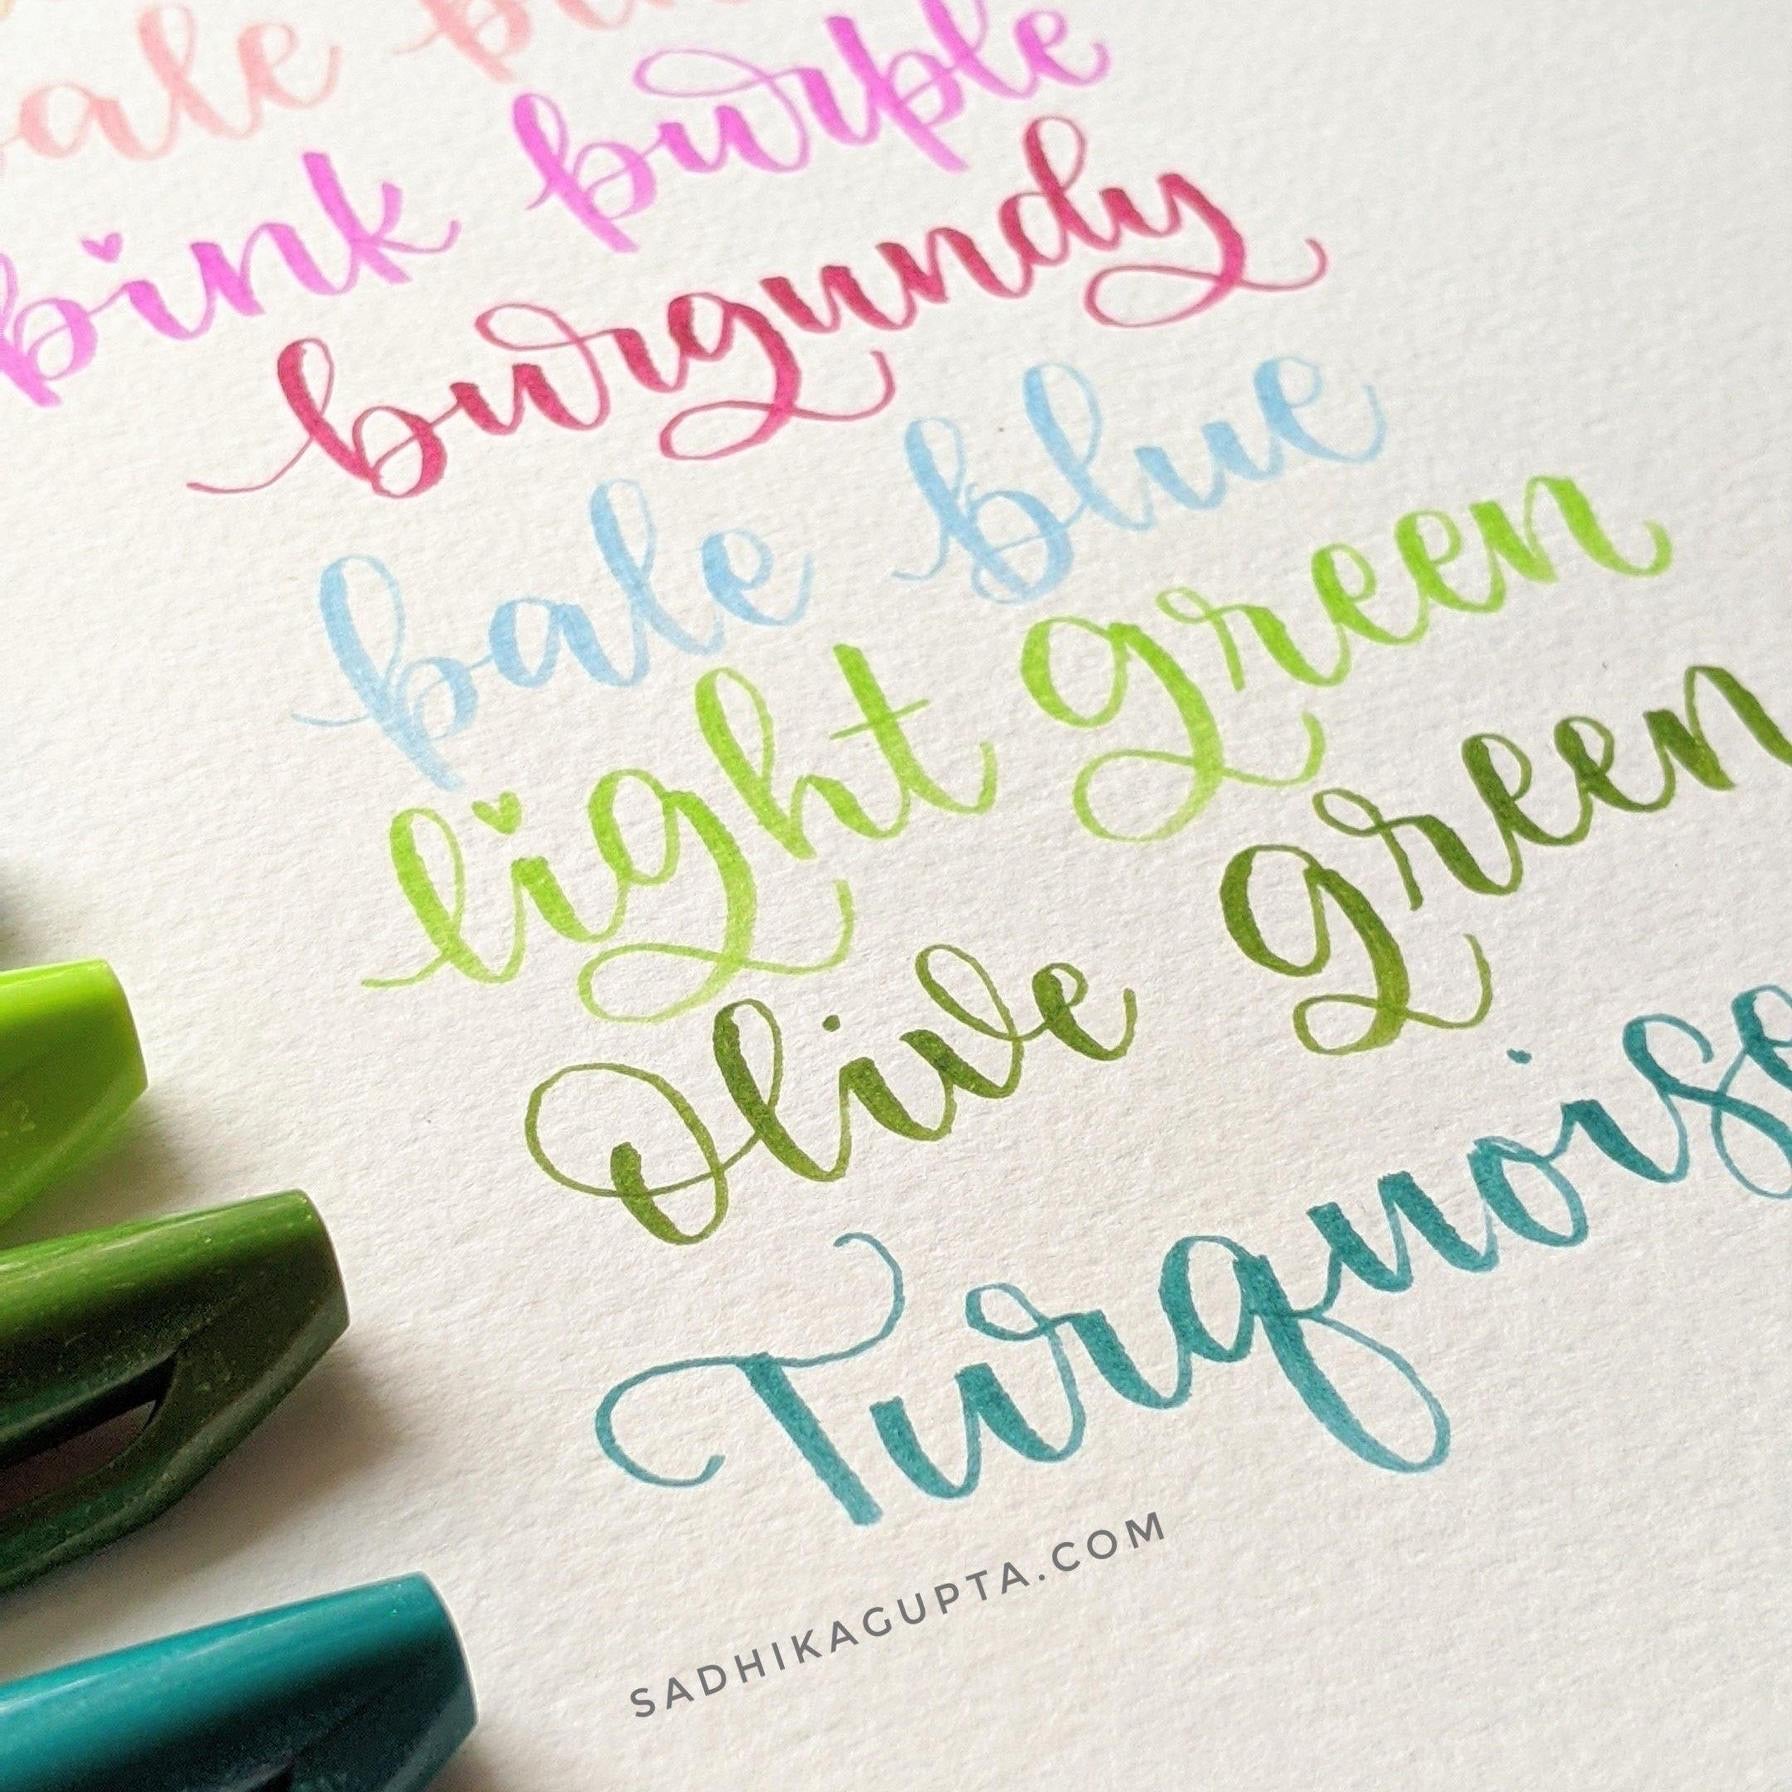 pale
pink purple
burgundy
pale blue
light green
Olive green
Turquoise
SADHIKAGUPTA.COM